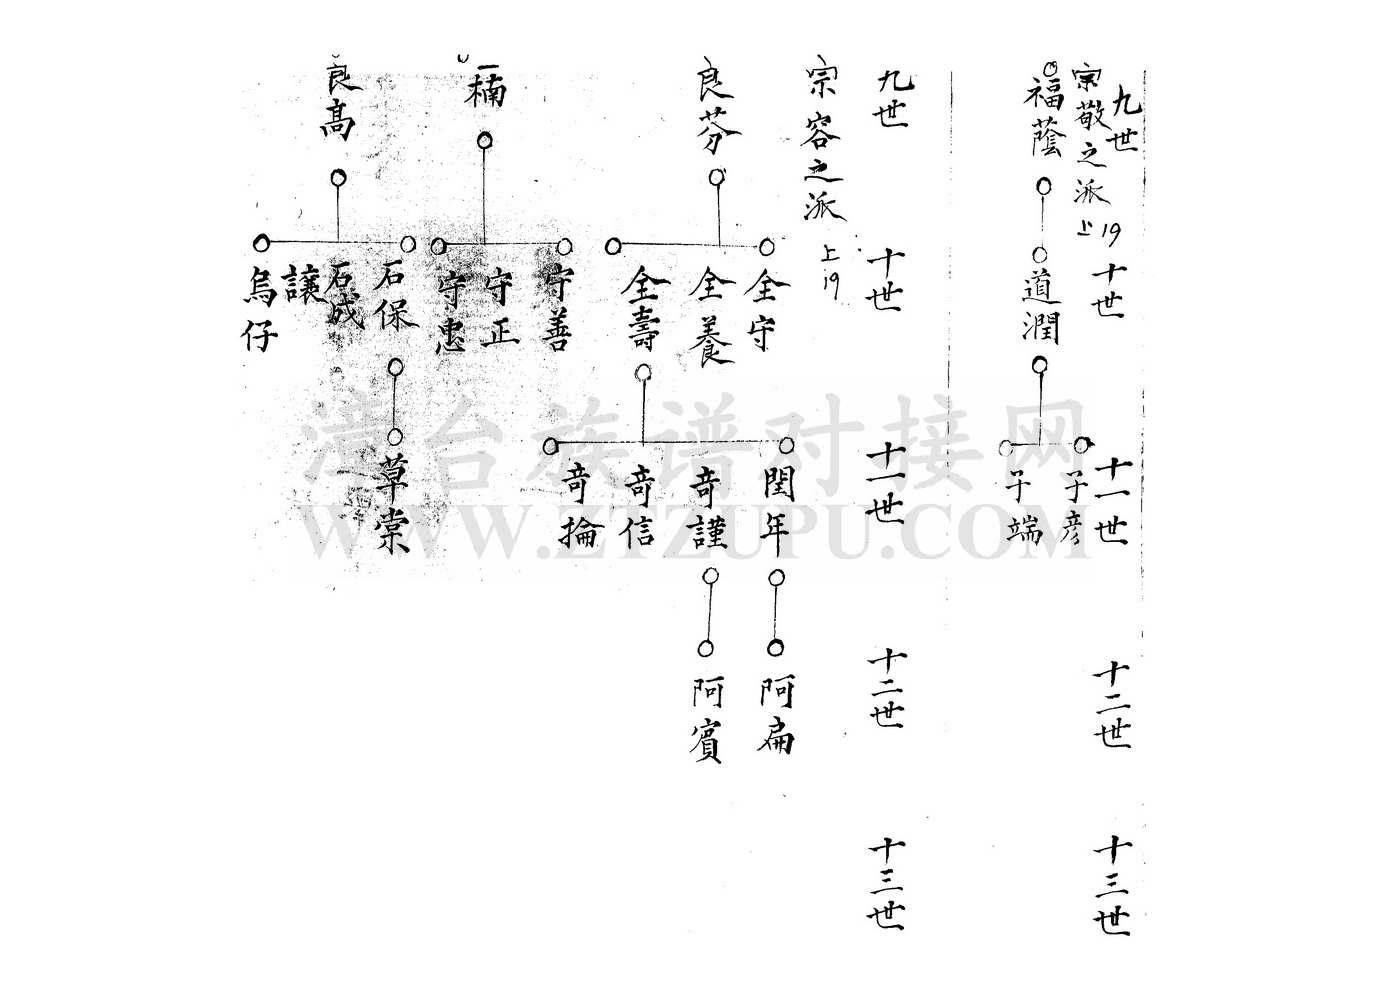 九世
宗敬之派
上19
福蔭
十世
道潤
十一世
子彦
子端
十二世
十三世
九世
宗容之派
上19
良芬
楠
良高
十世
全守
全養
全壽
守善
守正
守忠
石保
石成
讓
烏仔
十一世
閏年
奇謹
奇信
奇掄
草棠
十二世
阿扁
阿賓
十三世
漳台族谱对接网
WWW.ZTZUPU.COM